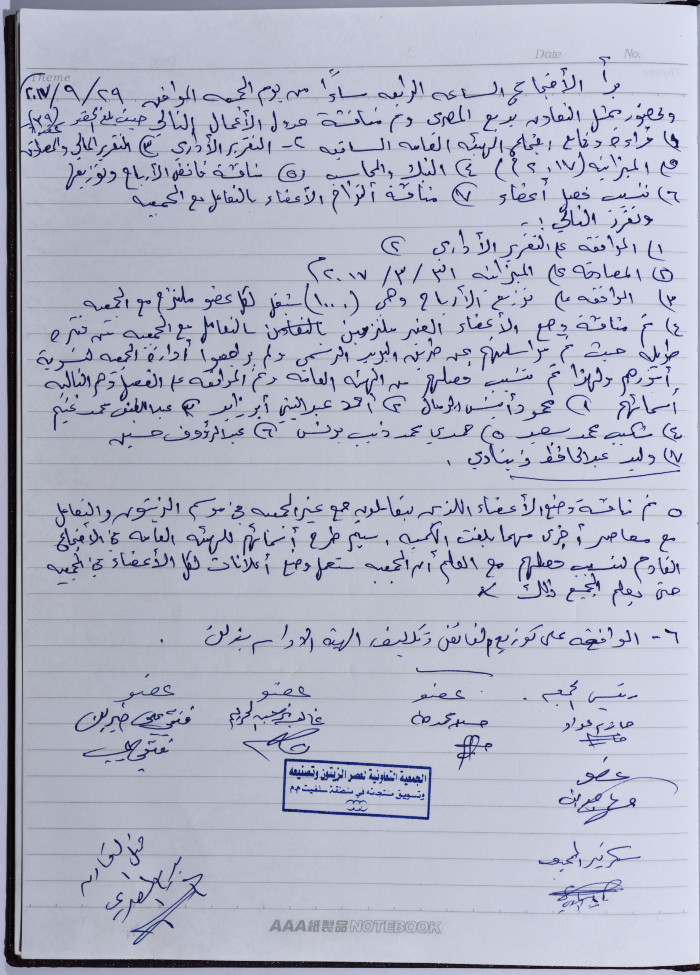 Date No.
Theme
بدأ الأجتماع الساعه الرابعه مساءً من يوم الجمعه الموافق ٢٩/٩/٢٠١٧
وبحضور ممثل التعاون بديع المصري وتم مناقشة جدول الأعمال التالي حيث بلغ الحضور (٣٩) عضو
١) قراءة وقائع اجتماع الهيئه العامه السابقه ٢- التقرير الأداري ٣) التقرير المالي والمصادقه
على الميزانيه (٢٠١٧م) ٤) البنك والمحاسب ٥) مناقشة فائض الأرباح وتوزيعها
٦) تنسيب فصل أعضاء ٧) مناقشة ألتزام الأعضاء بالتعامل مع الجمعيه
وتقرر التالي :-
١) الموافقه على التقرير الأداري
٢) المصادقة على الميزانيه ٣١/٣/٢٠١٧م
٣) الموافقه على توزيع الأرباح وهي (١٠٠٠) شيقل لكل عضو ملتزم مع الجمعيه
٤) تم مناقشة وضع الأعضاء الغير ملتزمين بالتعامل مع الجمعيه منذ فتره
طويله حيث تم مراسلتهم عن طريق البريد الرسمي ولم يراجعوا أدارة الجمعيه لتسوية
أمورهم ولهذا تم تنسيب فصلهم من الهيئه العامه وتم الموافقه على الفصل وهم التاليه
أسمائهم ١) محمود أنيس الرمال ٢) أحمد عبد النبي أبو زايد ٣) عبد اللطيف محمد غنيم
٤) شكيب محمد سعيد ٥) حمدي محمد ذيب يونس ٦) عبد الرؤوف حسين
٧) وليد عبد الحافظ زيتاوي .
٥ تم مناقشة وضع الأعضاء اللذين يتعاملون مع غير الجمعيه في موسم الزيتون والتعامل
مع معاصر أخرى مهما بلغت الكميه . سيتم طرح أسمائهم للهيئه العامه في الأجتماع
القادم لتنسيب فصلهم مع العلم أن الجمعيه ستعمل وضع أعلانات لكل الأعضاء في الجمعيه
حتى يعلم الجميع ذلك
٦- الموافقه على توزيع الفائض وتكليف الهيئه الاداريه بذلك .
رئيس الجمعيه عضو عضو عضو
حازم عواد
فتحي علي جبرين
عضو
سكرتير الجمعيه
الجمعية التعاونية لعصر الزيتون وتصنيعه
وتسويق منتجاته في منطقة سلفيت م.م
AAA紙製品NOTEBOOK